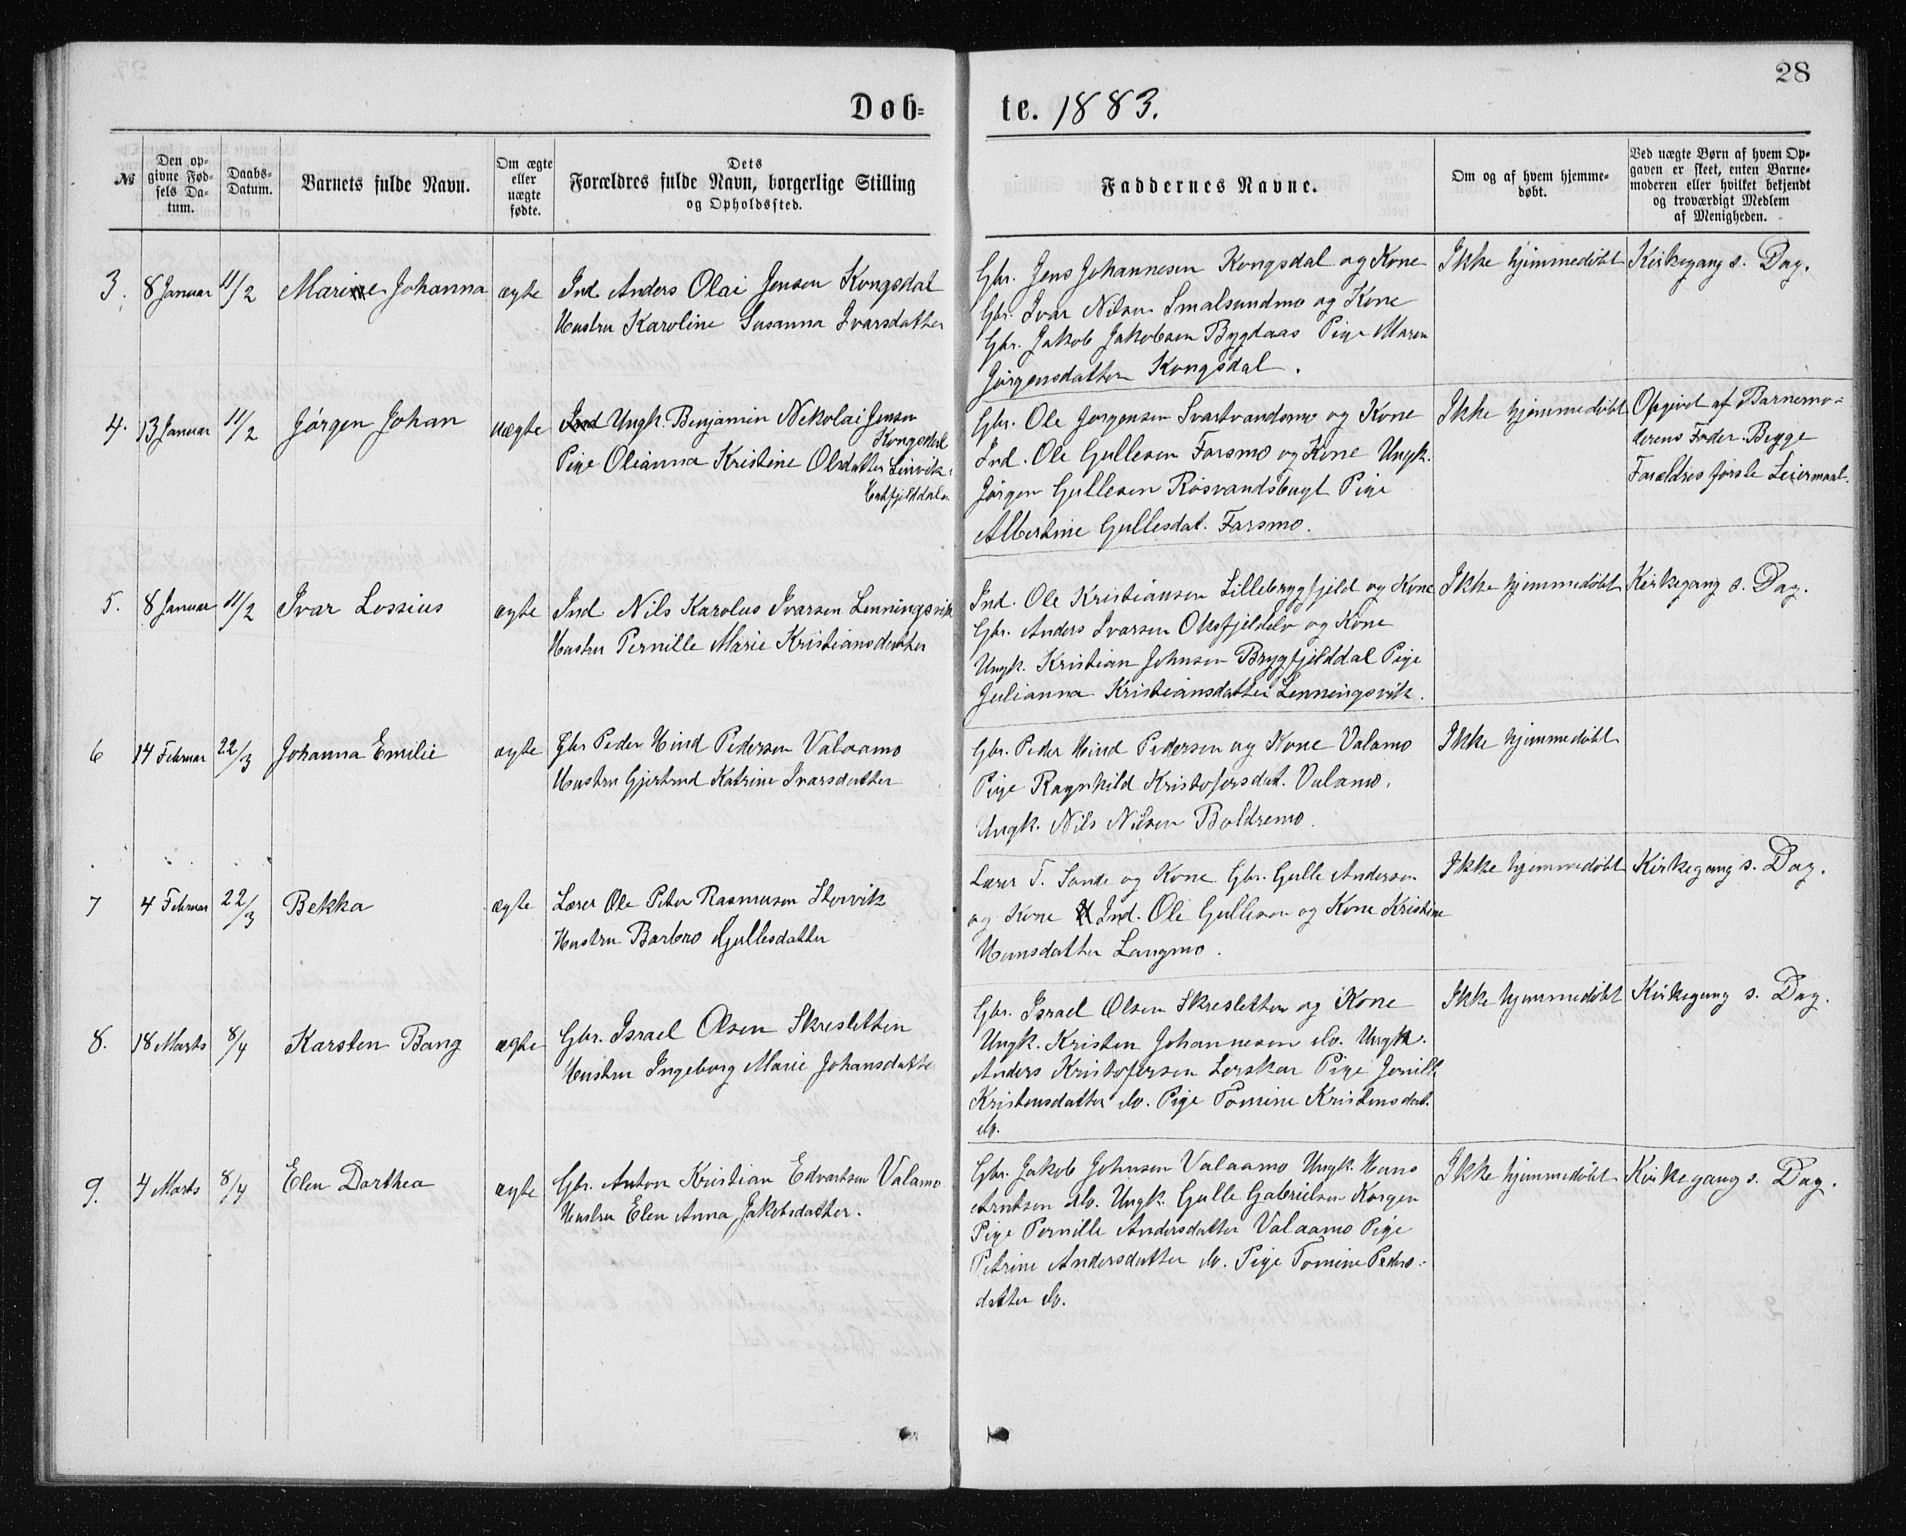 28
Døb- te. 1883.
№
Den op-
givne Fød-
sels Da-
tum.
Daabs-
Datum.
Barnets fulde Navn.
Om ægte
eller
uægte
fødte.
Dets
Forældres fulde Navn, borgerlige Stilling
og Opholdssted.
Faddernes Navne.
Om og af hvem hjemme-
døbt.
Ved uægte Børn af hvem Op-
gaven er skeet, enten Barne-
moderen eller hvilket bekjendt
og troværdigt Medlem
af Menigheden.
3. 8 Januar 11/2 Marine Johanna ægte
Ind. Anders Olai Jensen Kongsdal
Hustru Karoline Susanna Ivarsdatter
Gbr. Jens Johannesen Kongsdal og Kone
Gbr. Ivar Nilsen Smalsundmo og Kone
Gbr. Jakob Jakobsen Bygdaas Pige Maren
Jørgensdatter Kongsdal.
Ikke hjemmedøbt
Kirkegang s. Dag.
4. 13 Januar 11/2 Jørgen Johan uægte
Ungk. Benjamin Nikolai Jensen
Kongsdal
Pige Olianna Kristine Olsdatter Linvik
Hatfjelddalen
Gbr. Ole Jørgensen Svartvandsmo og Kone
Ind. Ole Gullesen Farsmo og Kone Ungk.
Jørgen Gullesen Røsvandsbugt Pige
Albertine Gullesdat. Farsmo.
Ikke hjemmedøbt
Opgivet af Barnemo-
derens Fader. Begge
Forældres første Leiermaal.
5. 8 Januar 11/2 Ivar Lossius ægte
Ind. Nils Karolus Ivarsen Lenningsvik
Hustru Pernille Marie Kristiansdatter
Ind. Ole Kristiansen Lillebrygfjeld og Kone
Gbr. Anders Ivarsen Oksfjeldelv og Kone
Ungk. Kristian Johnsen Brygfjelddal Pige
Julianna Kristiansdatter Lenningsvik.
Ikke hjemmedøbt
Kirkegang s. Dag.
6 14 Februar 22/3 Johanna Emilie ægte
Gbr Peder Hind Pedersen Valaamo
Hustru Gjertrud Katrine Ivarsdatter
Gbr. Peder Hind Pedersen og Kone Valamo
Pige Ragnhild Kristofersdat. Valamo.
Ungk. Nils Nilsen Boldremo.
Ikke hjemmedøbt
7 4 Februar 22/3 Bekka ægte
Lærer Ole Peter Rasmusen Storvik
Hustru Barbro Gullesdatter
Lærer T. Sande og Kone Gbr. Gulle Andersen
og Kone Ind. Ole Gullesen og Kone Kristine
Hansdatter Langmo.
Ikke hjemmedøbt
Kirkegang s. Dag.
8. 18 Marts 8/4 Karsten Bang ægte
Gbr. Israel Olsen Skresletten
Hustru Ingeborg Marie Johansdatter
Gbr. Israel Olsen Skresletten og Kone
Ungk. Kristen Johannesen do. Ungk.
Anders Kristofersen Pige
Kristensdatter do. Pige Tomine Kristensdat.
do.
Ikke hjemmedøbt
Kirkegang s. Dag.
9. 4 Marts 8/4 Elen Dorthea ægte
Gbr. Anton Kristian Edvartsen Valamo
Hustru Elen Anna Jakobsdatter.
Gbr. Jakob Johnsen Valaamo Ungk. Hans
Arntsen do. Ungk. Gulle Gabrielsen Korgen
Pige Pernille Andersdatter Valaamo Pige
Petrine Andersdatter do. Pige Tomine Peders-
datter do.
Ikke hjemmedøbt
Kirkegang s. Dag.